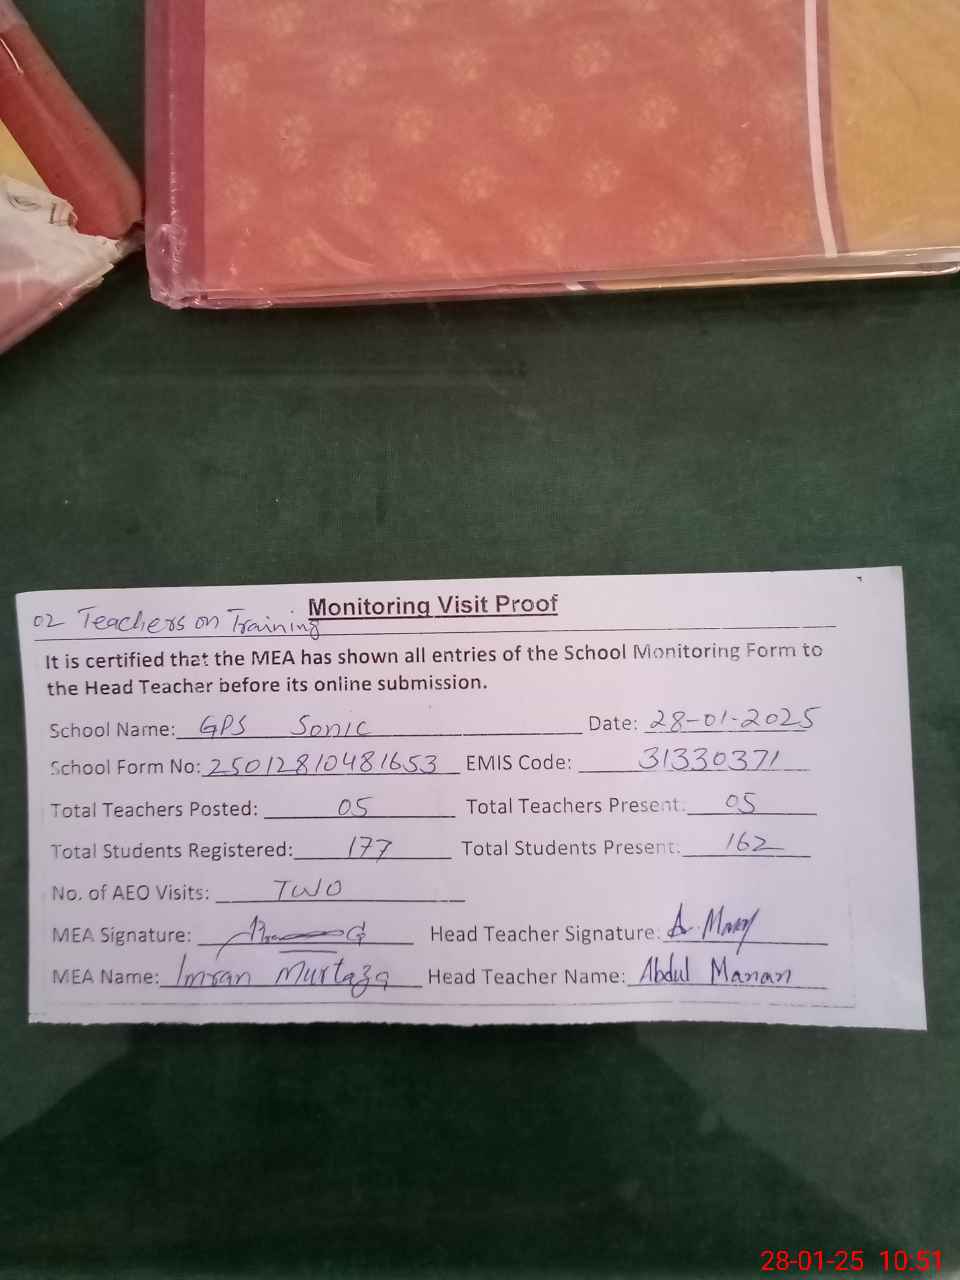 Monitoring Visit Proof
02 Teachers on Training
It is certified that the MEA has shown all entries of the School Monitoring Form to
the Head Teacher before its online submission.
School Name: GPS Sonic Date: 28-01-2025
School Form No: 25012810481653 EMIS Code: 31330371
Total Teachers Posted: 05 Total Teachers Present: 05
Total Students Registered: 177 Total Students Present: 162
No. of AEO Visits: TWO
MEA Signature: Head Teacher Signature: A. Man
MEA Name: Imran Murtaza Head Teacher Name: Abdul Manan
28-01-25 10:51